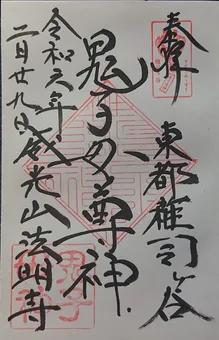 奉拝
東都雑司ヶ谷
鬼子母尊神
威光山法明寺
令和六年
二月廿九日